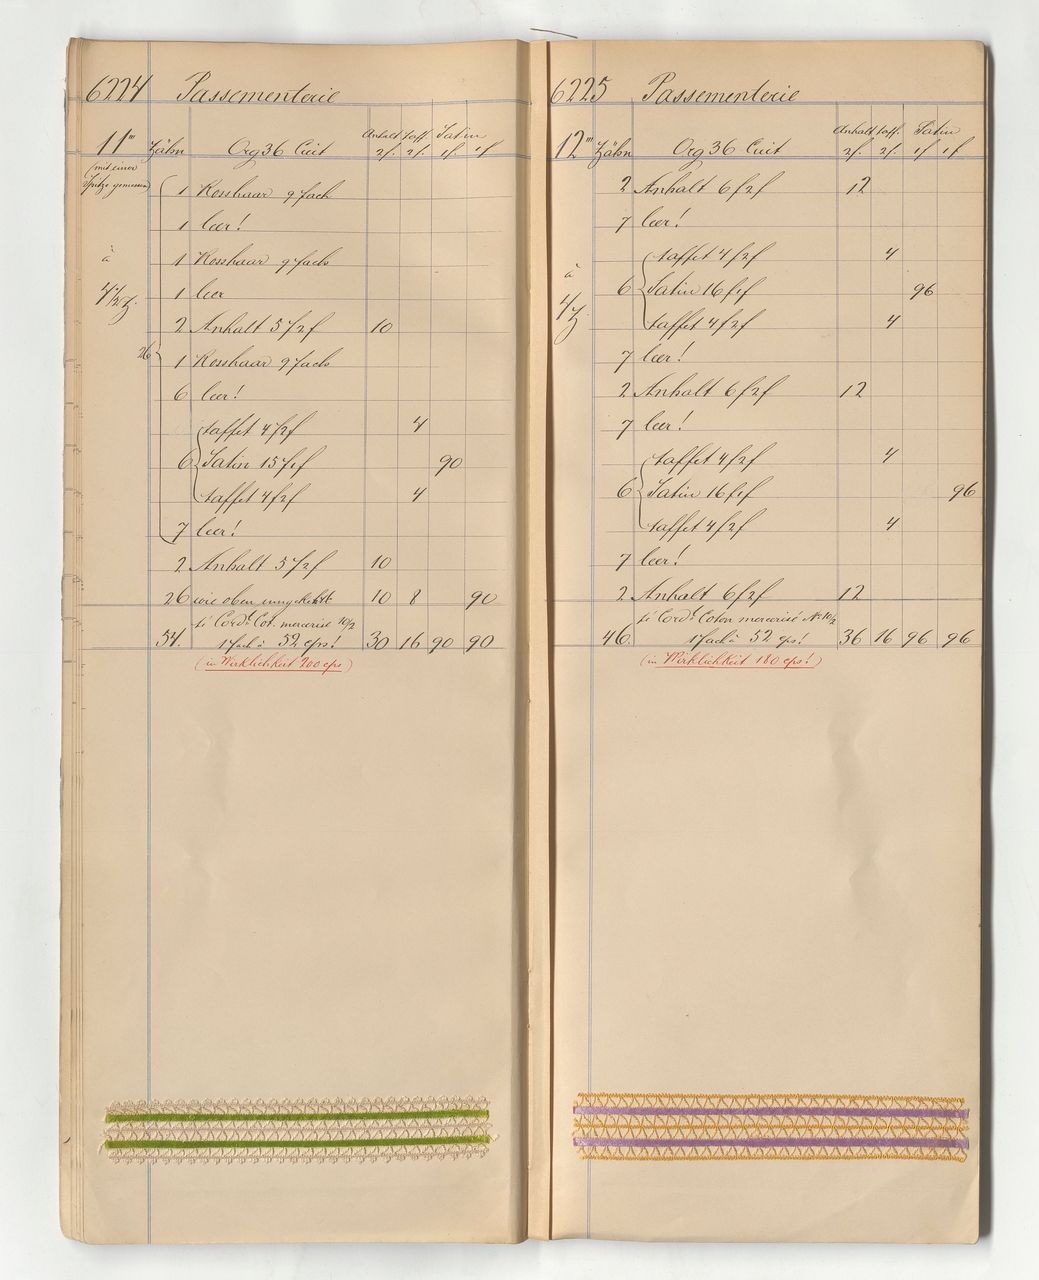 6224 Passementerie
Anhalt taff. Satin
11''' Zähn Org 36 Cuit 2f. 2f. 1f. 1f
(mit einer
Spitze gemessen)
1 Rosshaar 9 fach
1 leer!
à
1 Rosshaar 9 fach
4 1/2 Z.
1 leer
2 Anhalt 5 f 2 f 10
26 1 Rosshaar 9 fach
6 leer!
taffet 4 f 2 f 4
6 Satin 15 f 1 f 90
taffet 4 f 2 f 4
7 leer!
2 Anhalt 5 f 2 f 10
26 wie oben umgekehrt 10 8 90
si Cord. Cot. mercerisé 10/2
54. 1 fach à 52 cps! 30 16 90 90
(in Wirklichkeit 200 cps)
6225 Passementerie
Anhalt taff. Satin
12''' Zähn Org 36 Cuit 2f. 2f. 1f 1f
2 Anhalt 6 f 2 f 12
7 leer!
taffet 4 f 2 f 4
à
4 Z.
6 Satin 16 f 1 f 96
taffet 4 f 2 f 4
7 leer!
2 Anhalt 6 f 2 f 12
7 leer!
taffet 4 f 2 f 4
6 Satin 16 f 1 f 96
taffet 4 f 2 f 4
7 leer!
2 Anhalt 6 f 2 f 12
si Cord. Coton mercerisé No 10/2
46. 1 fach à 52 cps! 36 16 96 96
(in Wirklichkeit 180 cps!)